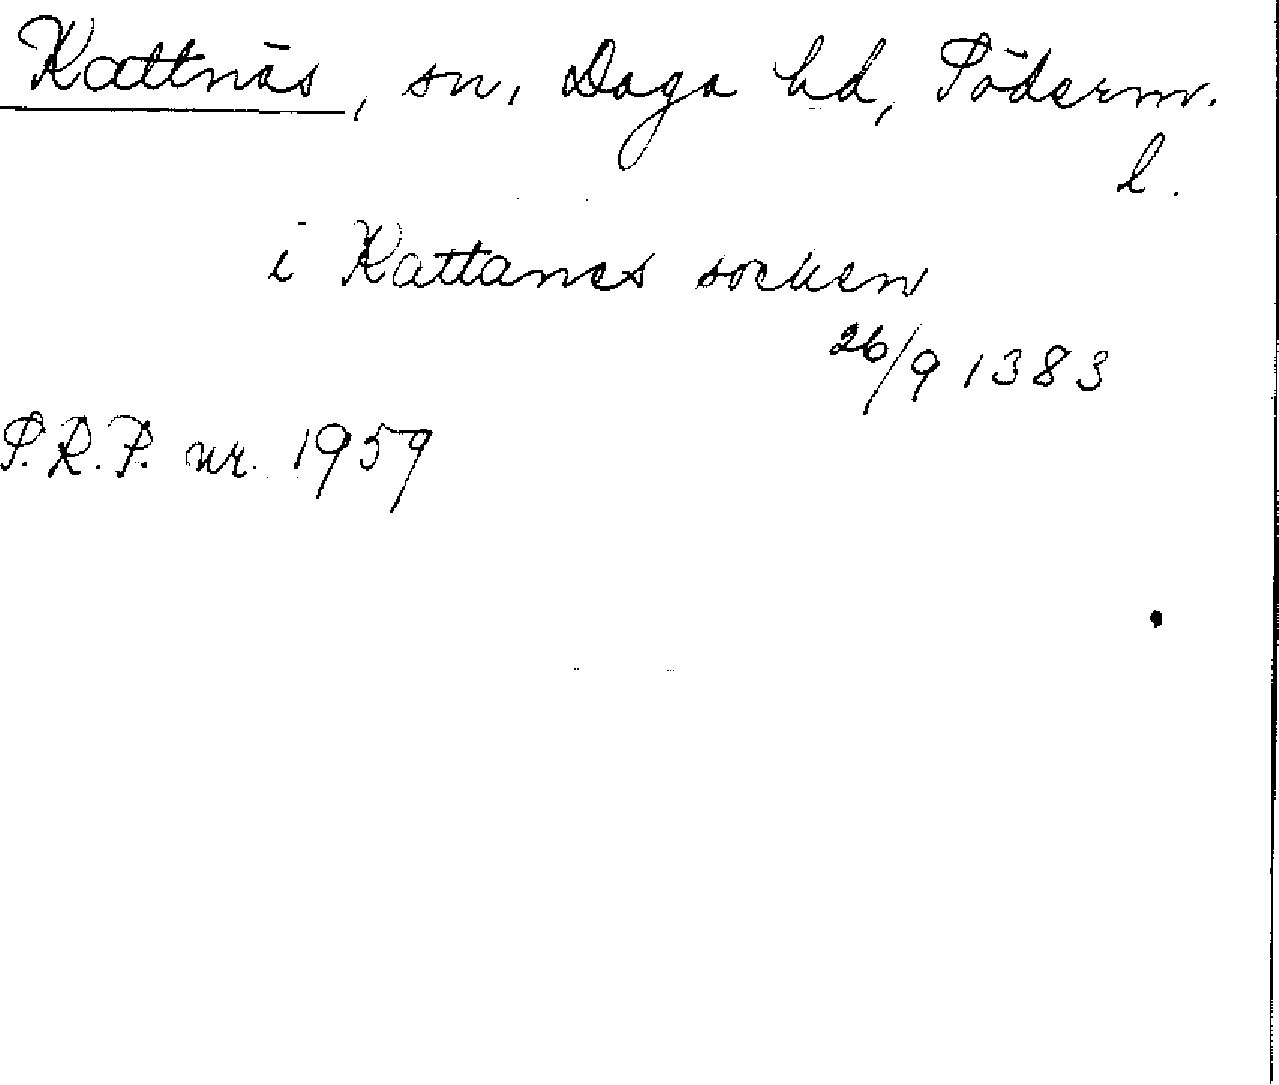 Kattnäs, sn, Daga hd, Söderm.
l.
i Kattanes socken
26/9 1383
S.R.P. nr. 1959